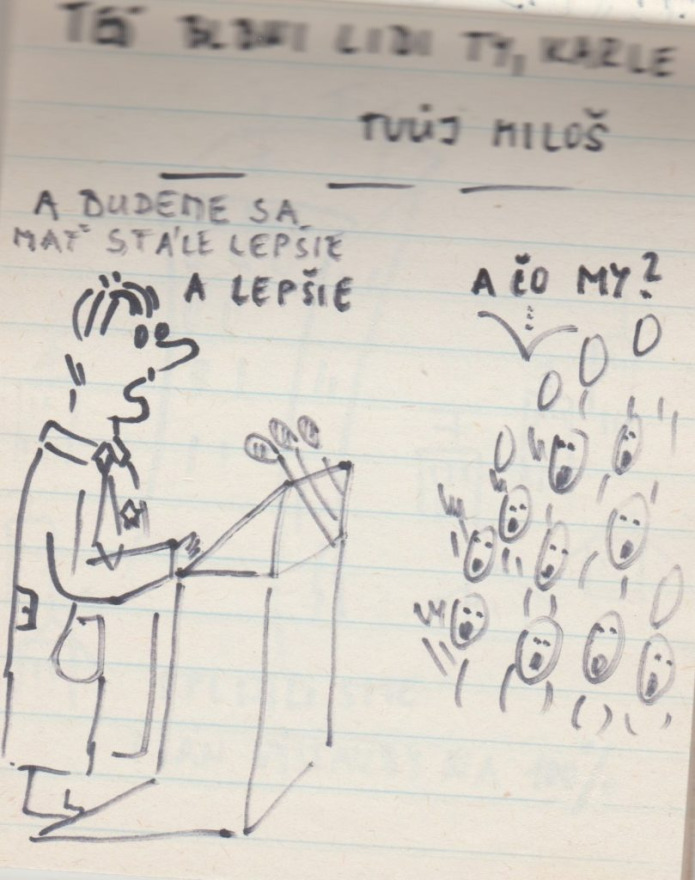 LIDI TY, KARLE
TVŮJ MILOŠ
A BUDEME SA
MAŤ STÁLE LEPŠIE
A LEPŠIE
A ČO MY?